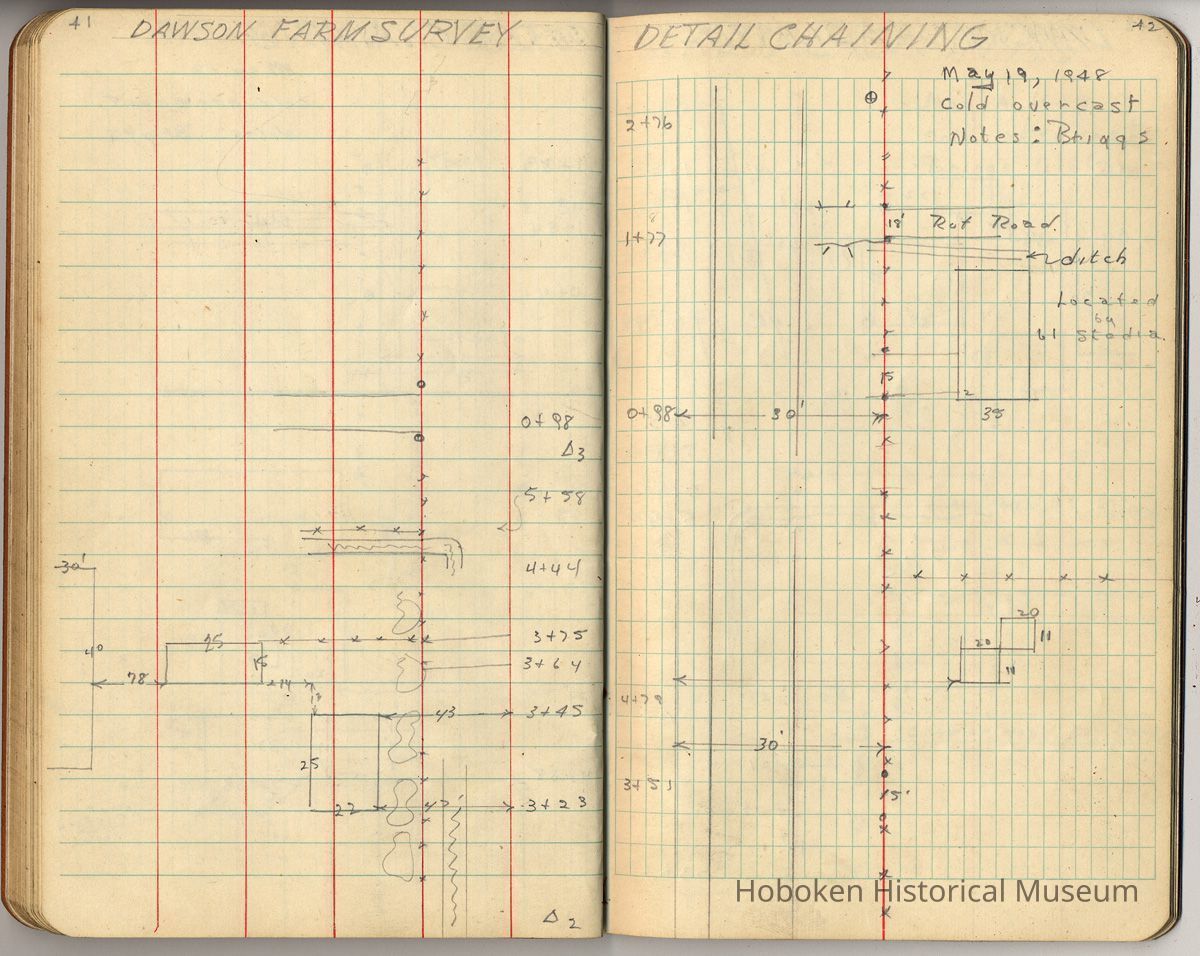 41
DAWSON FARM SURVEY
0+98
Δ3
5+58
30'
4+44
25
3+75
40
15
3+64
78
14
43
3+45
25
22
3+23
Δ2
42
DETAIL CHAINING
May 19, 1948
Cold overcast
Notes: Briggs
2+76
18'
Rut Road
1+77
ditch
Located
by
Stadia
15
0+98
30'
20
20
11
11
4+79
30'
3+51
15'
Hoboken Historical Museum